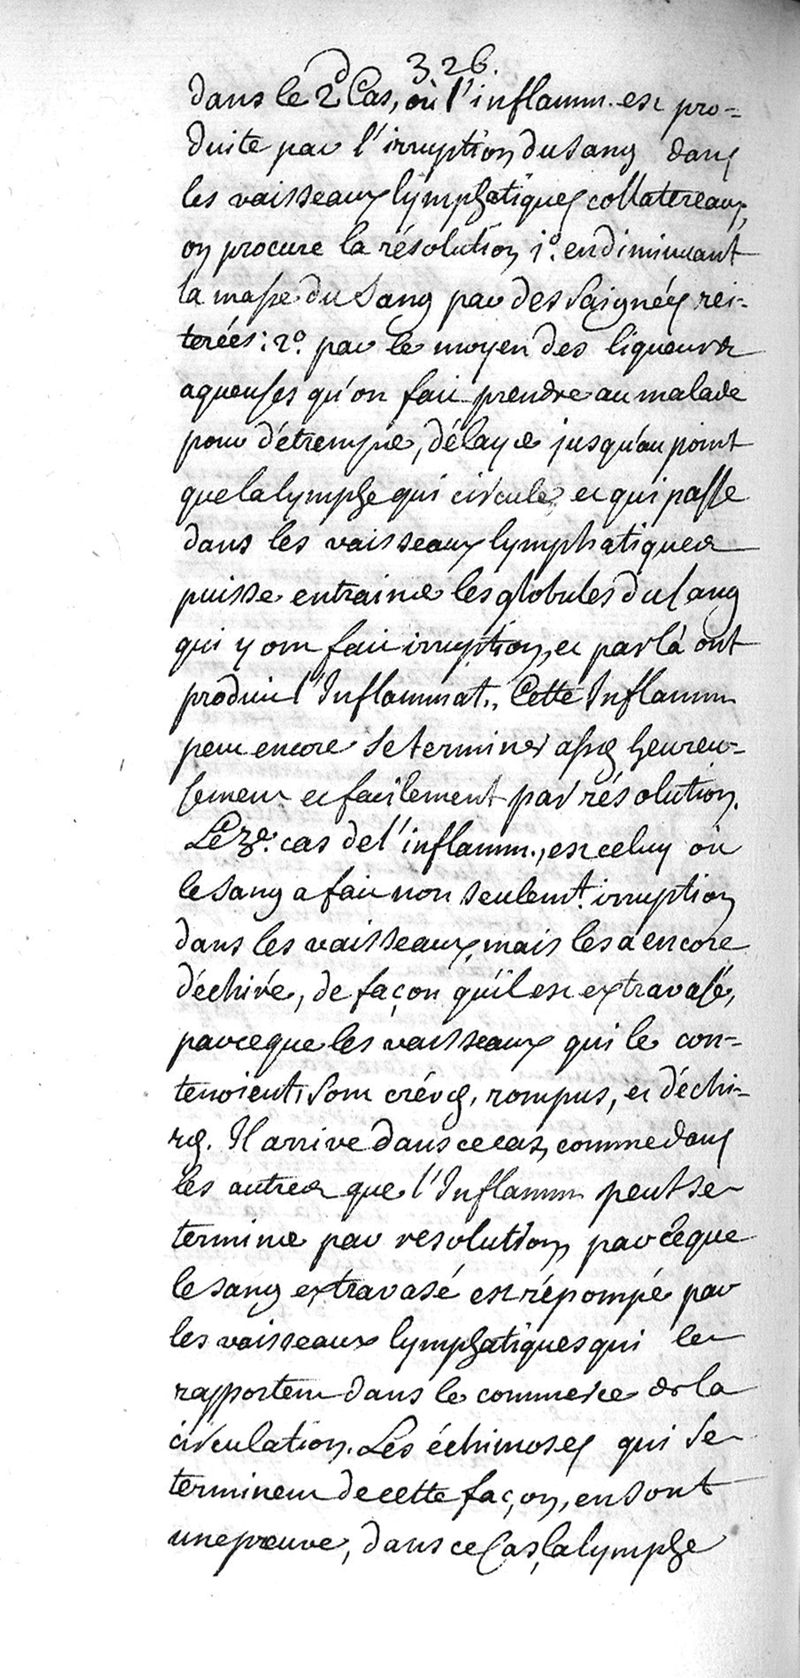 326.
dans le 2d Cas, où l'inflamm. est pro-
duite par l'irruption du sang dans
les vaisseaux lymphatiques collatereaux,
on procure la résolution 1°. en diminuant
la masse du Sang par des saignées réi-
terées: 2°. par le moyen des liqueurs
aqueuses qu'on fait prendre au malade
pour d'étremper, délayer jusqu'au point
que la lymphe qui circule et qui passe
dans les vaisseaux lymphatiques
puisse entrainer les globules du sang
qui y ont fait irruption, et par là ont
produit l'Inflammat.. Cette Inflamm
peut encore se terminer assés heureu-
sement et facilement par résolution.
Le 3e. cas de l'inflamm., est celuy où
le sang a fait non seulemt. irruption
dans les vaisseaux, mais les a encore
déchiré, de façon qu'il est extravasé,
parceque les vaisseaux qui le con-
tenoient, sont crévés, rompus, et déchi-
rés. Il arrive dans ce cas, comme dans
les autres que l'Inflamm peut se
terminer par resolution, parceque
le sang extravasé est répompé par
les vaisseaux lymphatiques qui le
rapportent dans le commerce de la
circulation. Les échimoses qui se
terminent de cette façon, en sont
une preuve, dans ce Cas, la lymphe